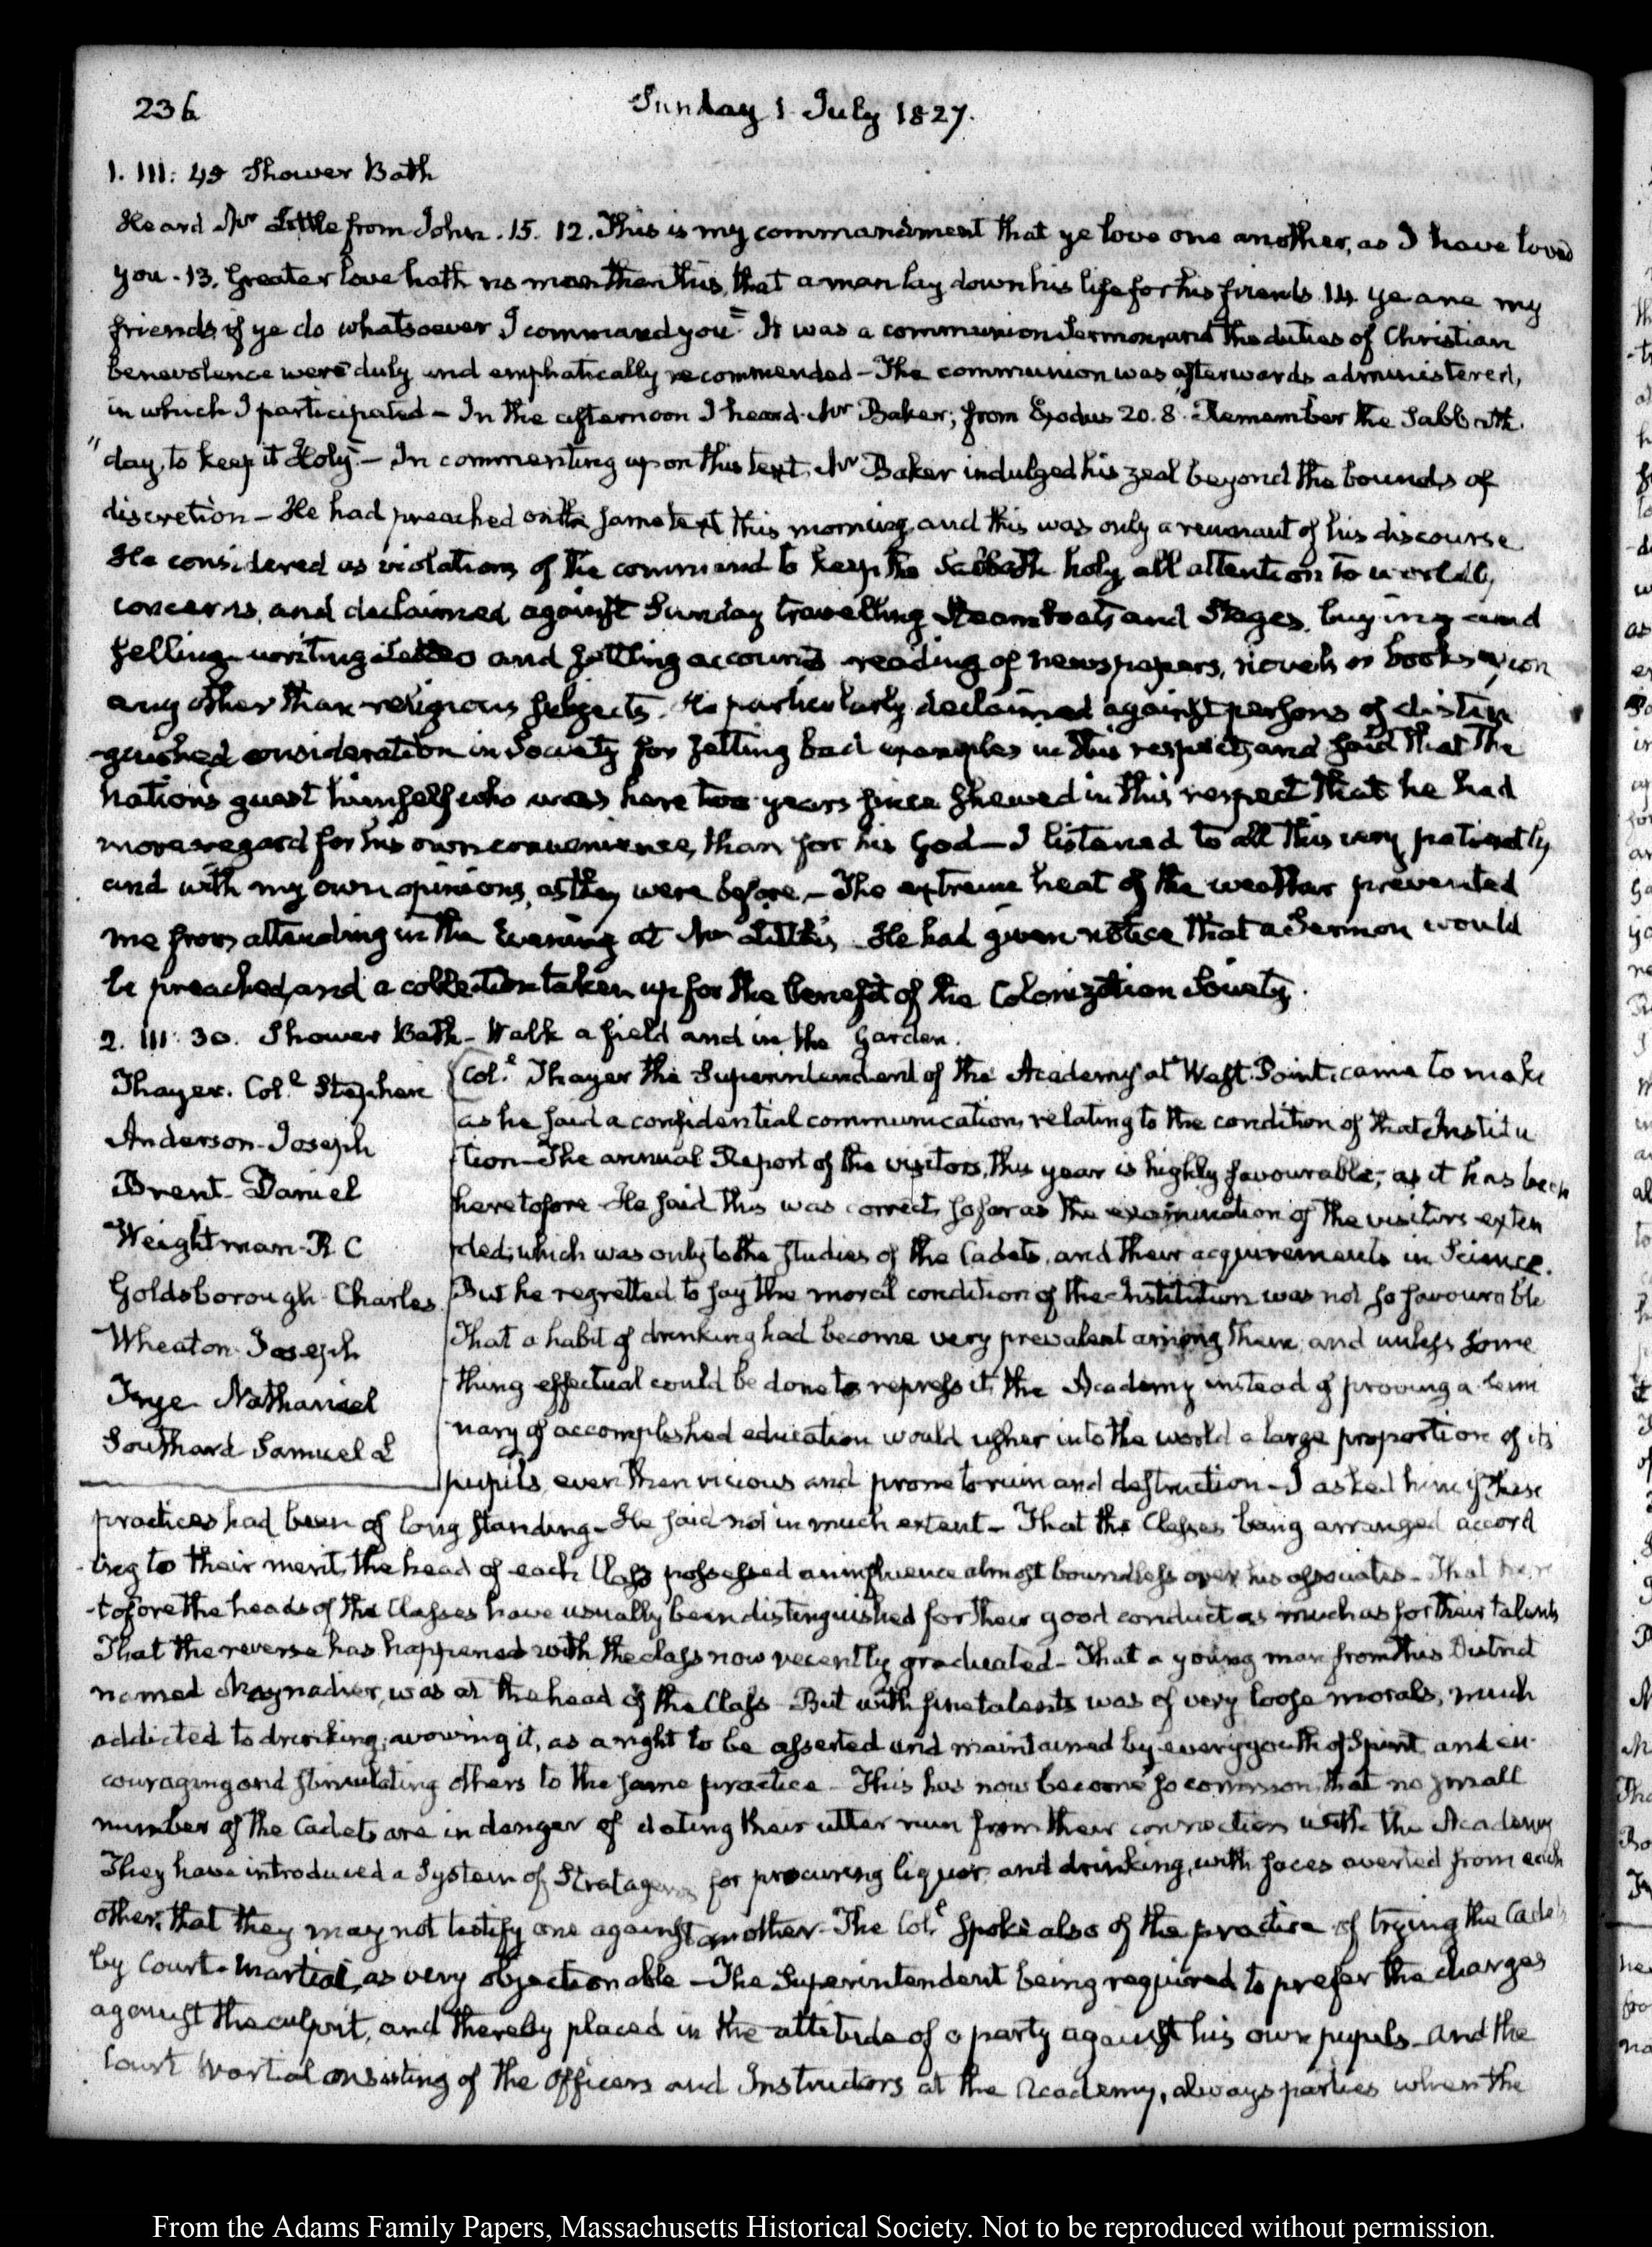 236
Sunday 1. July 1827.
1. III: 45 Shower Bath
Heard Mr Little from John. 15. 12. This is my commandment that ye love one another, as I have loved
you. 13. Greater love hath no man than this, that a man lay down his life for his friends. 14. ye are my
friends, if ye do whatsoever I command you = It was a communion Sermon, and the duties of Christian
benevolence were duly and emphatically recommended — The communion was afterwards administered,
in which I participated — In the afternoon I heard Mr Baker; from Exodus 20. 8. Remember the Sabbath
"day, to keep it Holy — In commenting upon this text, Mr Baker indulged his zeal beyond the bounds of
discretion — He had preached on the same text this morning, and this was only a remnant of his discourse
He considered as violations of the command to keep the Sabbath holy all attention to worldly
concerns, and declaimed against Sunday travelling Steamboats and Stages, buying and
selling, writing and settling accounts reading of newspapers, novels or books upon
any other than religious subjects. He particularly declaimed against persons of distin
-guished consideration in Society for setting bad examples in this respect, and said that the
Nation's guest himself who was here two years since shewed in this respect that he had
more regard for his own convenience, than for his God — I listened to all this very patiently
and with my own opinions, as they were before. — The extreme heat of the weather prevented
me from attending in the Evening at Mr Little's. He had given notice that a Sermon would
be preached, and a collection taken up for the benefit of the Colonization Society.
2. III: 30. Shower Bath — Walk a field and in the Garden.
Thayer. Col.l Stephen
Anderson — Joseph
Brent — Daniel
Weightman — R C
Goldsborough — Charles
Wheaton — Joseph
Frye — Nathaniel
Southard — Samuel L
Col.l Thayer the Superintendent of the Academy at West-Point, came to make
as he said a confidential communication, relating to the condition of that Institu
tion — The annual Report of the visitors, this year is highly favourable; as it has been
heretofore — He said this was correct, so far as the examination of the visitors exten
ded; which was only to the studies of the Cadets, and their acquirements in Science.
But he regretted to say the moral condition of the Institution was not so favourable
That a habit of drinking had become very prevalent among them, and unless some
thing effectual could be done to repress it, the Academy instead of proving a Semi
nary of accomplished education would usher into the world a large proportion of its
pupils, even then vicious and prone to ruin and destruction — I asked him if these
practices had been of long standing — He said not in much extent — That the Classes being arranged accord
-ing to their merit, the head of each Class possessed an influence almost boundless over his associates — That here
-tofore the heads of the Classes have usually been distinguished for their good conduct as much as for their talents
That the reverse has happened with the class now recently graduated — That a young man from this District
named Maynadier, was at the head of the Class — But with fine talents was of very loose morals, much
addicted to drinking; avowing it, as a right to be asserted and maintained by every youth of Spirit, and en-
couraging and stimulating others to the same practice — This has now become so common, that no small
number of the Cadets are in danger of dating their utter ruin from their connection with the Academy
They have introduced a System of Stratagems for procuring liquor, and drinking, with faces averted from each
other, that they may not testify one against another — The Col.l spoke also of the practice of trying the Cadets
by Court-Martial, as very objectionable — The Superintendent being required to prefer the charges
against the culprit, and thereby placed in the attitude of a party against his own pupils — and the
Court Martial consisting of the Officers and Instructors at the Academy, always parties when the
From the Adams Family Papers, Massachusetts Historical Society. Not to be reproduced without permission.